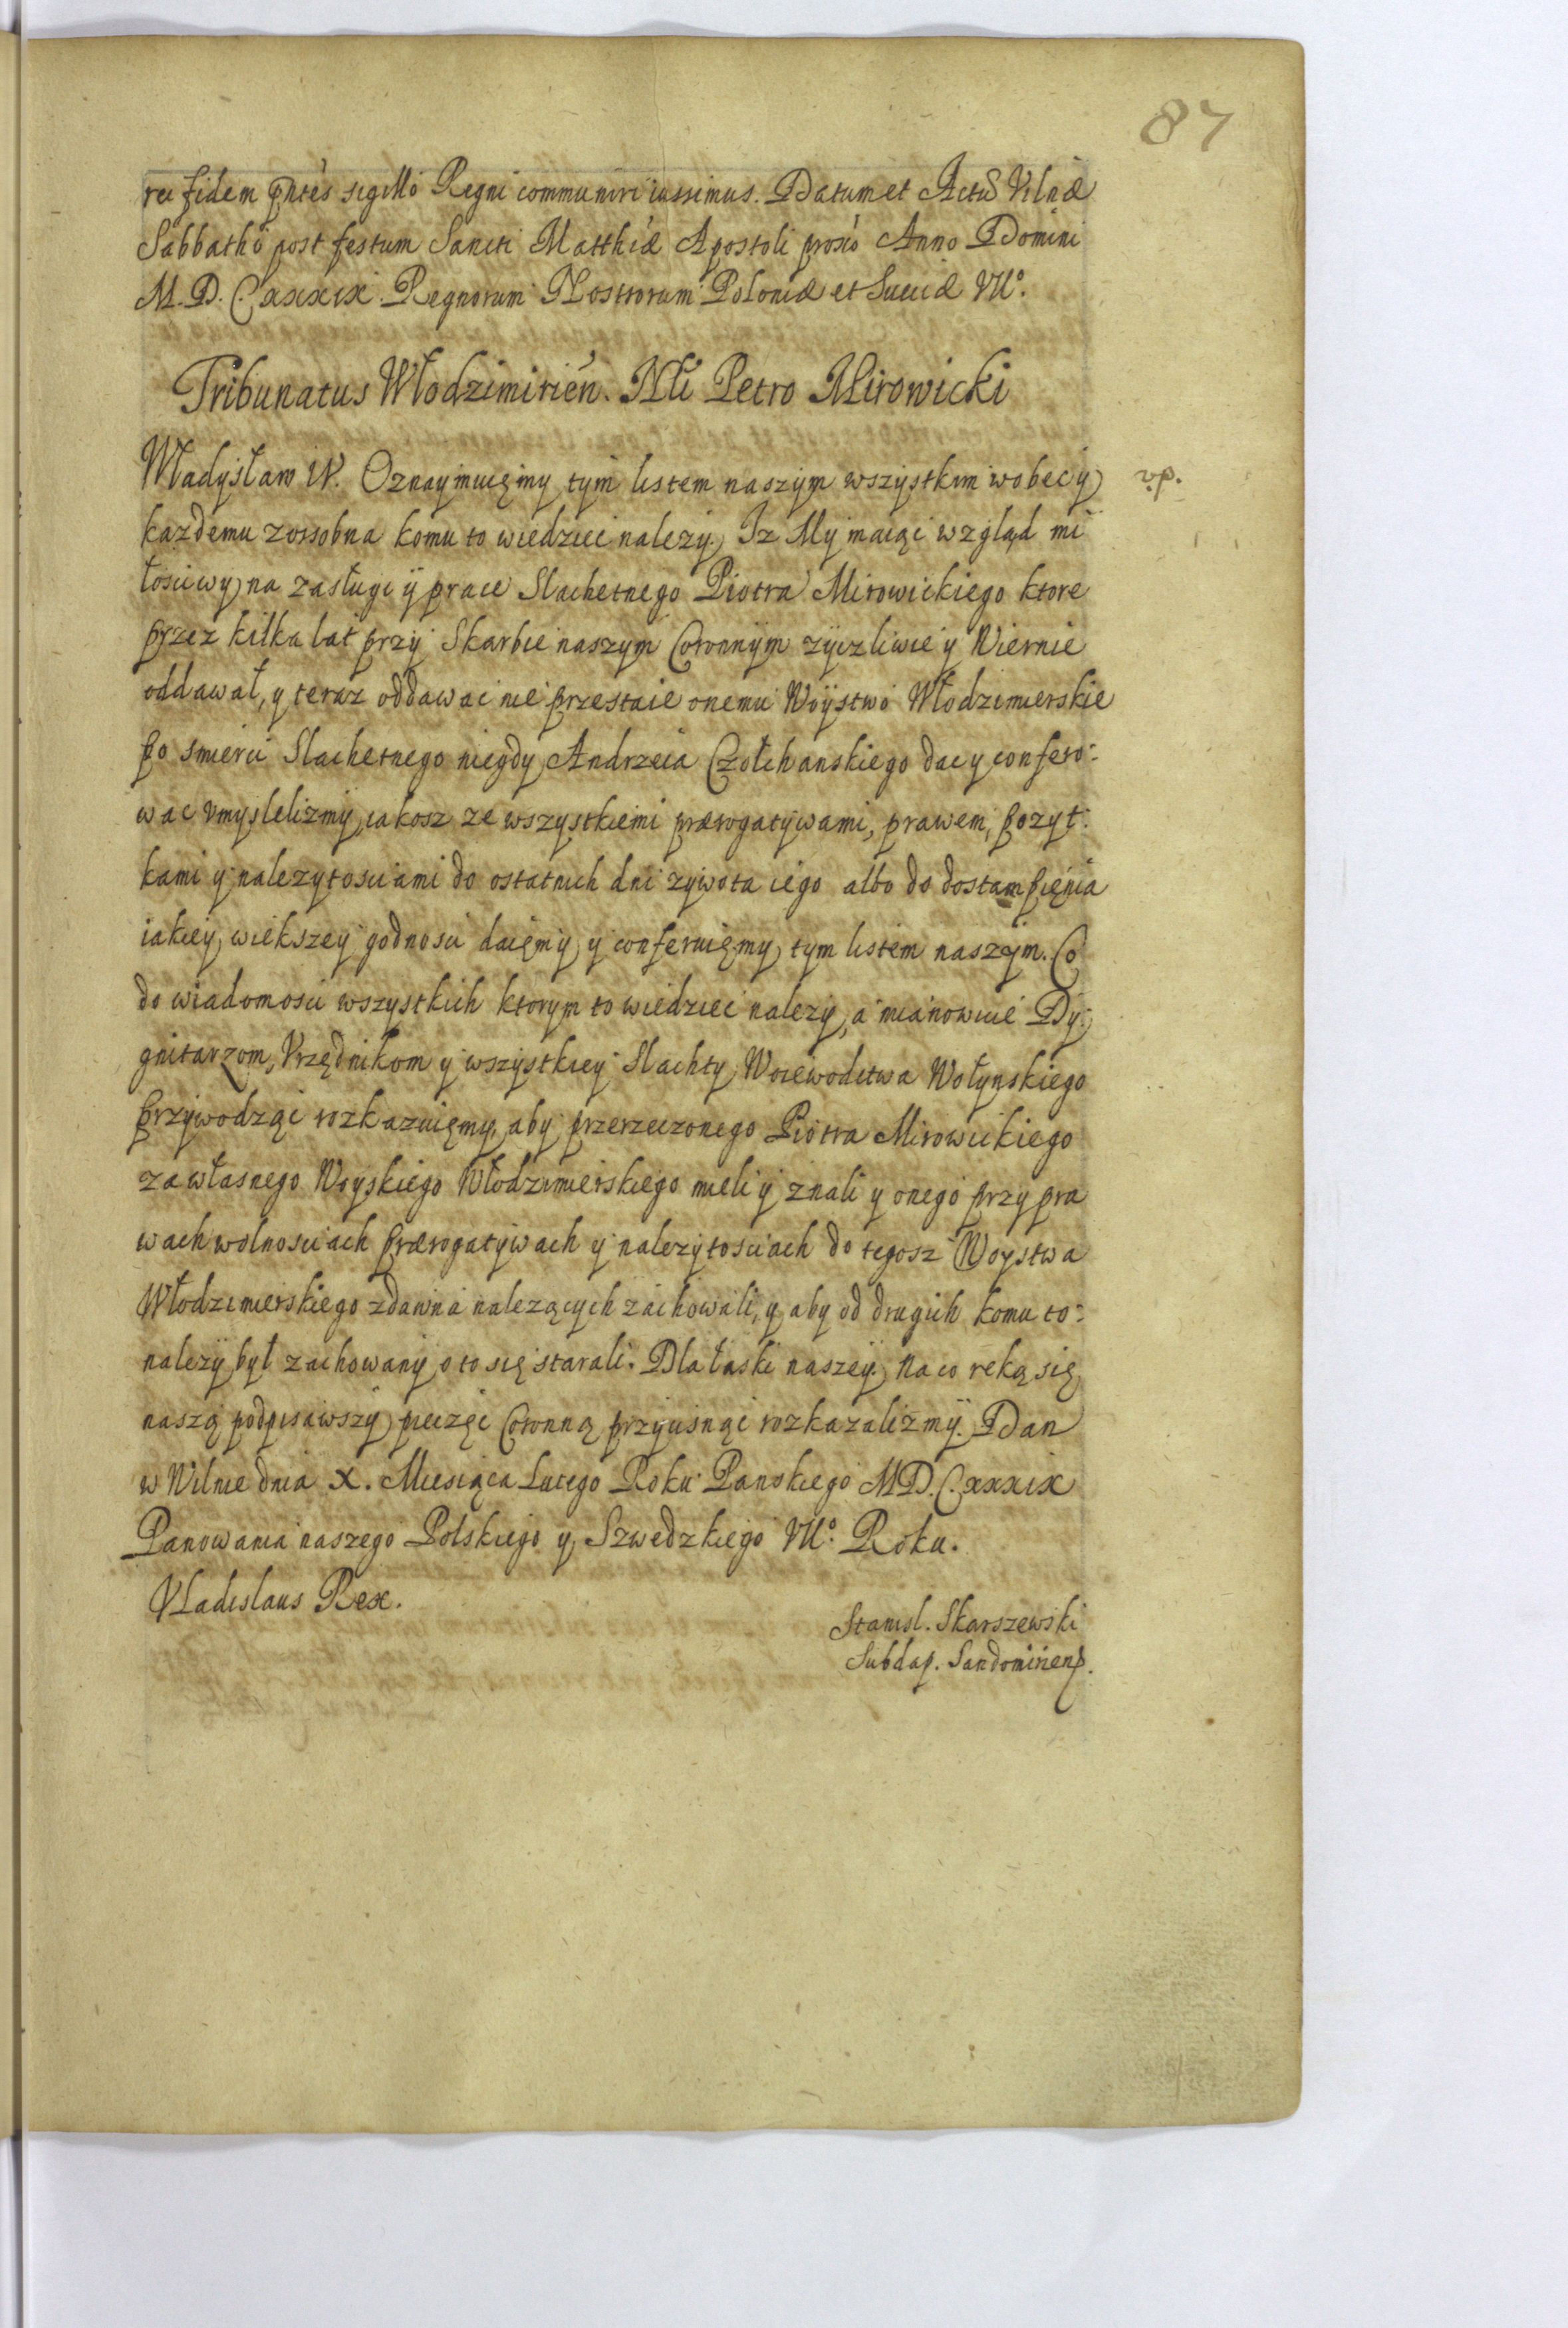 87
rei fidem pñtes sigillo Regni communiri iussimus. Datum et Actũ Vilnæ
Sabbatho post festum Sancti Matthiæ Apostoli proxio Anno Domini
M. D. C. xxxix. Regnorum Nostrorum Poloniæ et Sueciæ VIIº.
Tribunatus Włodzimirień. Nli Petro Mirowicki
Władysław IV. Oznaymuięmy tym listem naszym wszystkim wobec y
każdemu zossobna komu to wiedziec nalezy. Iz My maiąc wzgląd mi
łosciwy na zasługi ÿ prace Slachetnego Piotra Mirowickiego ktore
przez kilka lat przy Skarbie naszym Coronnym zyczliwie y Wiernie
oddawał, y teraz oddawac nie przestaie onemu Woystwo Włodzimierskie
po smierci Slachetnego niegdy Andrzeia Czołchanskiego dac y confero:
wac vmyslelizmy, iakosz ze wszystkiemi prærogatywami, prawem, pozyt:
kami y nalezytosciami do ostatnich dni zywota iego albo do dostampięnia
iakiey wiekszey godnosci daięmy y conferuięmy tym listem naszym. Co
do wiadomosci wszystkich ktorym to wiedziec nalezy, a mianowicie Dy:
gnitarzom, Vrzędnikom y wszystkiey Slachty Woiewodctwa Wołynskiego
przywodząc rozkazuięmy, aby przerzeczonego Piotra Mirowickiego
za własnego Woyskiego Włodzimierskiego mieli y znali y onego przy pra
wach wolnosciach prærogatywach y nalezytosciach do tegosz Woystwa
Włodzimierskiego zdawna nalezących zachowali, y aby od drugich komu to:
nalezy był zachowany o to się starali. Dla łaski naszey. Na co reką się
naszą podpisawszy pieczęc Coronną przycisnąc rozkazalizmÿ. Dan
w Wilnie dnia X. Miesiąca Lutego Roku Panskiego MD.C.xxxix
Panowania naszego Polskiego y Szwedzkiego VIIº. Roku.
Vladislaus Rex.
Stanisl. Skarszewski
Subdap. Sandomirien.